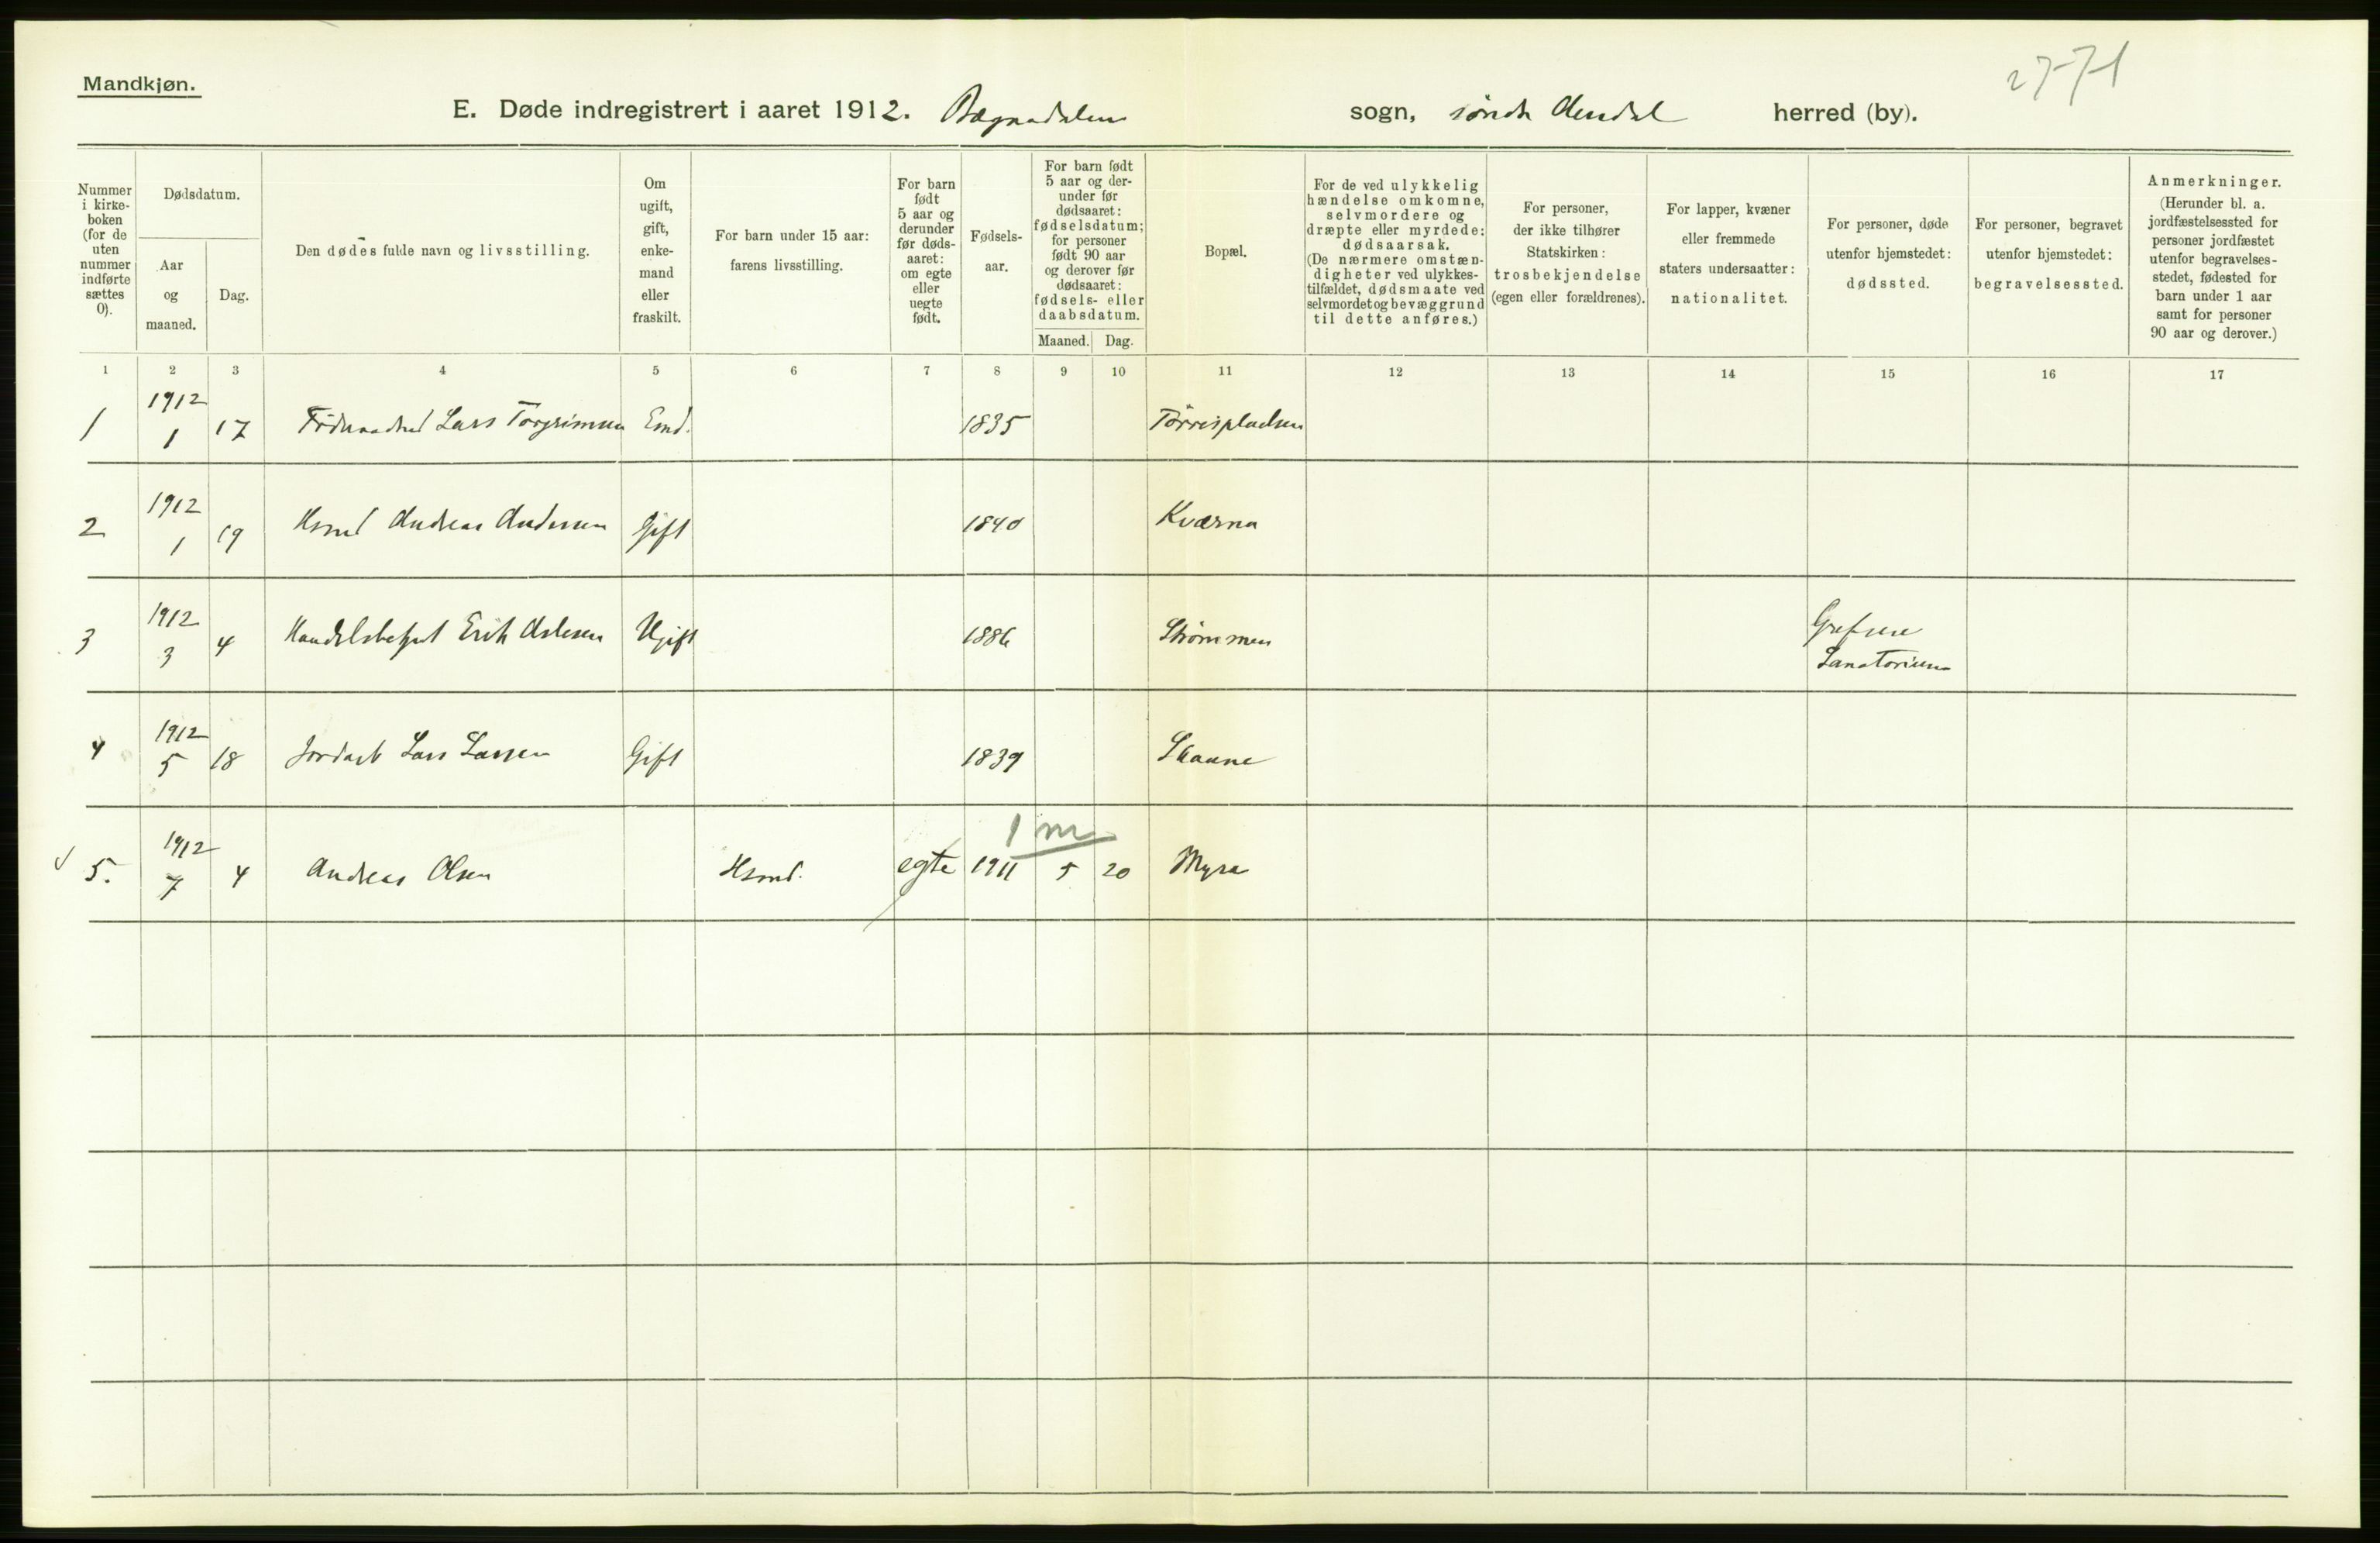 Mandkjøn.
27-71
E. Døde indregistrert i aaret 1912. Bægnadalen sogn, søndr Aurdal herred (by).
Nummer
i kirke-
boken
(for de
uten
nummer
indførte
sættes
0).
Dødsdatum.
Aar
og
maaned.
Dag.
Den dødes fulde navn og livsstilling.
Om
ugift,
gift,
enke-
mand
eller
fraskilt.
For barn under 15 aar:
farens livsstilling.
For barn
født
5 aar og
derunder
før døds-
aaret:
om egte
eller
uegte
født.
Fødsels-
aar.
For barn født
5 aar og der-
under før
dødsaaret:
fødselsdatum;
for personer
født 90 aar
og derover før
dødsaaret:
fødsels- eller
daabsdatum.
Maaned. Dag.
Bopæl.
For de ved ulykkelig
hændelse omkomne,
selvmordere og
dræpte eller myrdede:
dødsaarsak.
(De nærmere omstæn-
digheter ved ulykkes-
tilfældet, dødsmaate ved
selvmordet og bevæggrund
til dette anføres.)
For personer,
der ikke tilhører
Statskirken:
trosbekjendelse
(egen eller forældrenes).
For lapper, kvæner
eller fremmede
staters undersaatter:
nationalitet.
For personer, døde
utenfor hjemstedet:
dødssted.
For personer, begravet
utenfor hjemstedet:
begravelsessted.
Anmerkninger.
(Herunder bl. a.
jordfæstelsessted for
personer jordfæstet
utenfor begravelses-
stedet, fødested for
barn under 1 aar
samt for personer
90 aar og derover.)
1 2 3 4 5 6 7 8 9 10 11 12 13 14 15 16 17
1912
1 1 17 Lars Torgrimsen Emd. 1835 Tørrispladsen
1912
2 1 19 Hsmd Andreas Andersen Gift 1840 Kværna
1912
3 3 4 Handelsbetjent Erik Aslesen Ugift 1886 Strømmen Grefsen
Sanatorium
1912
4 5 18 Jordarb Lars Larsen Gift 1839 Skaune
1 m
1912
5. 7 4 Andreas Olsen Hsmd. egte 1911 5 20 Myra